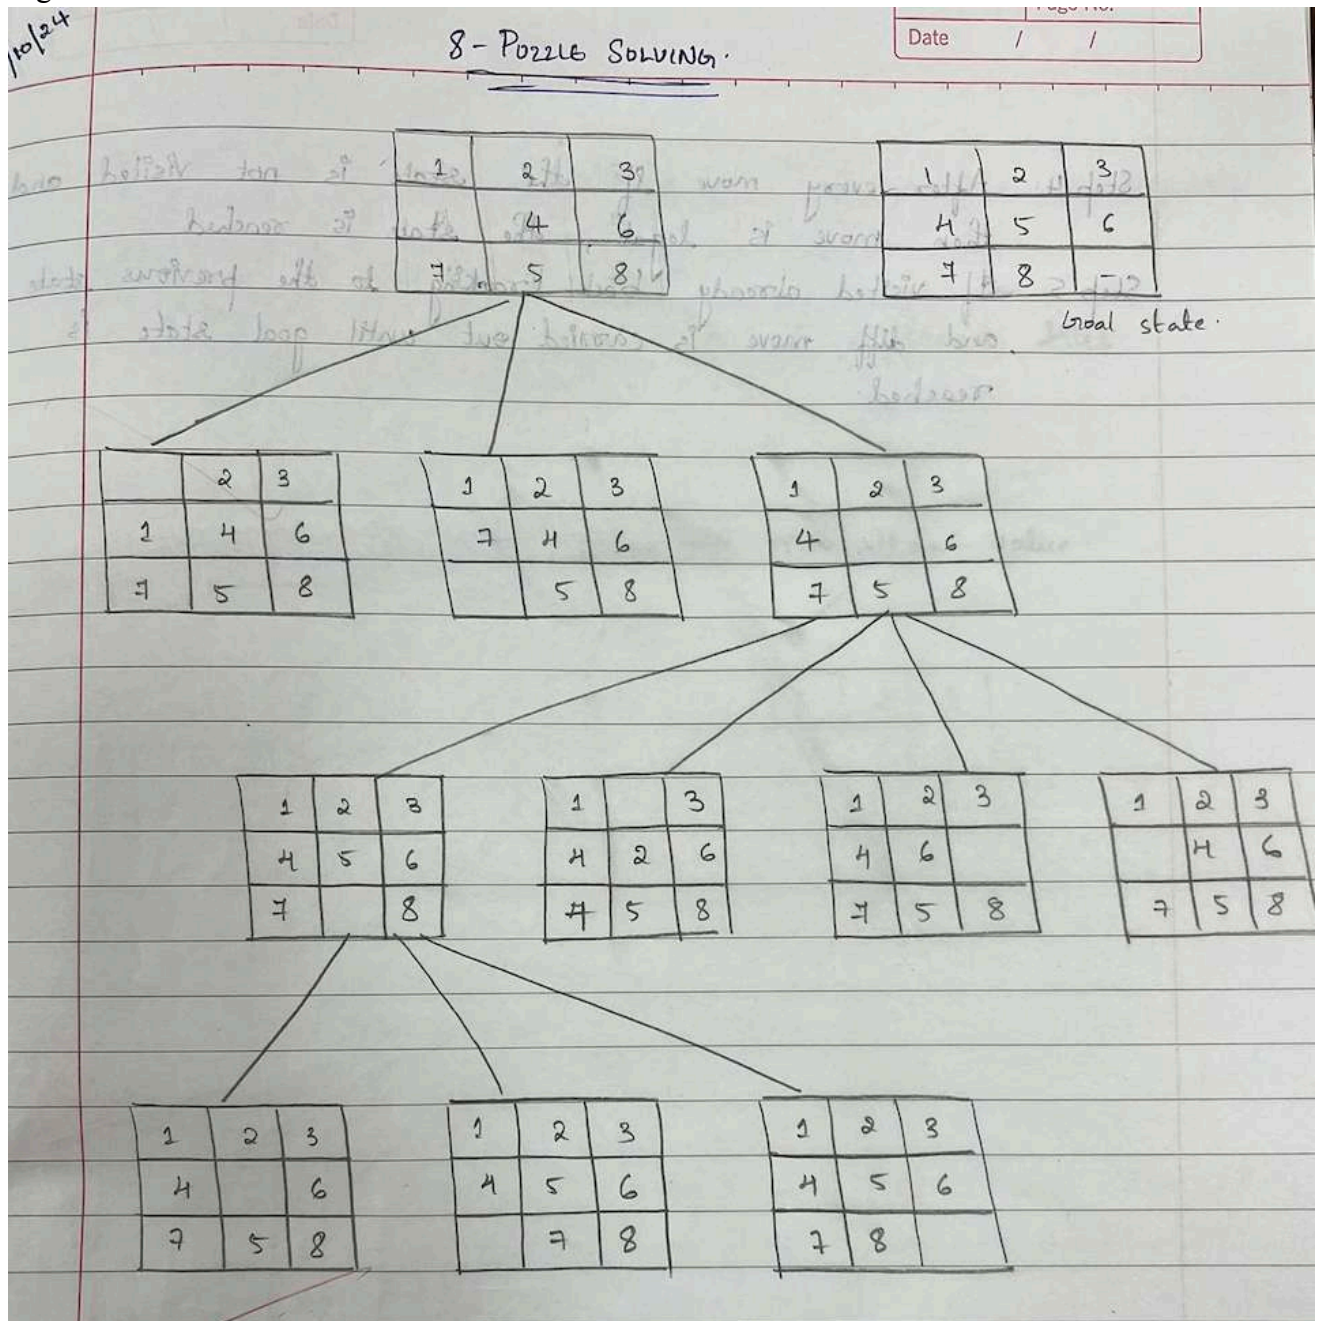 /10/24
Date / /
8 - PUZZLE SOLVING.
1 2 3
4 6
7 5 8
1 2 3
4 5 6
7 8 -
Goal state.
2 3
1 4 6
7 5 8
1 2 3
7 4 6
5 8
1 2 3
4 6
7 5 8
1 2 3
4 5 6
7 8
1 3
4 2 6
7 5 8
1 2 3
4 6
7 5 8
1 2 3
4 6
7 5 8
1 2 3
4 6
7 5 8
1 2 3
4 5 6
7 8
1 2 3
4 5 6
7 8